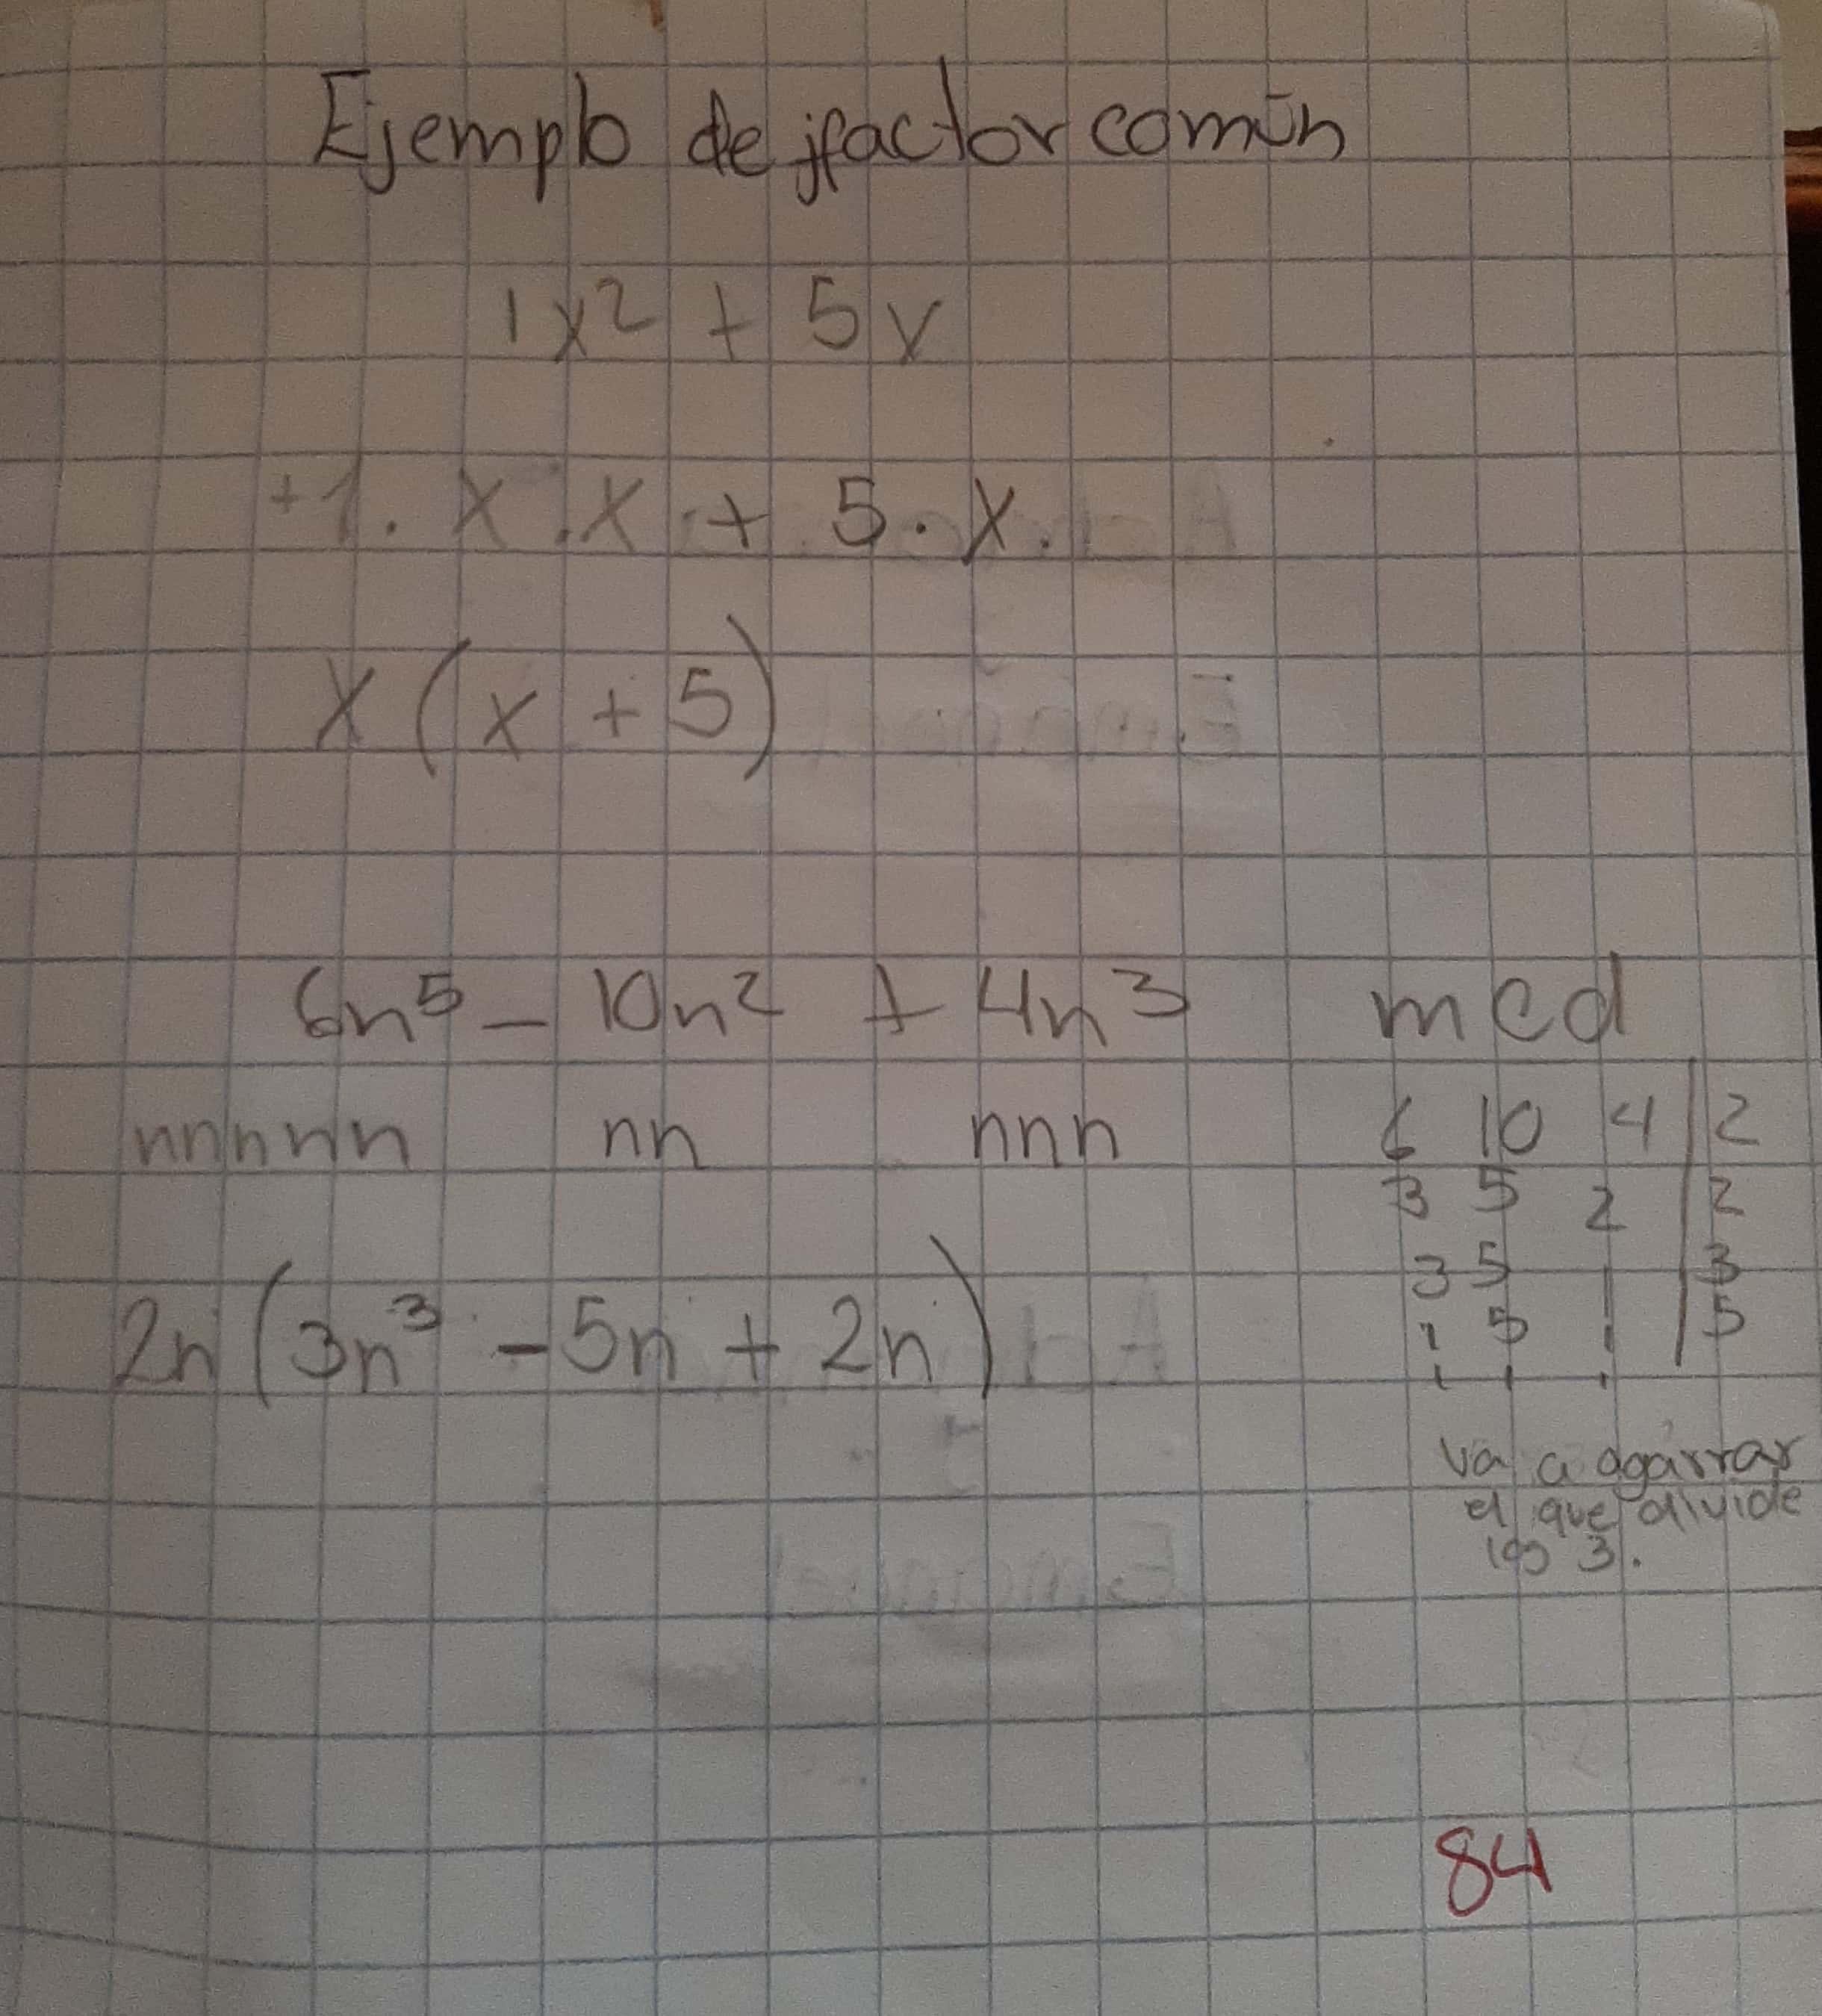 Ejemplo de factor común
1x² + 5x
+1. x.x + 5.x.
x(x + 5)
6n⁵ - 10n² + 4n³
nnnnn nn nnn
2n(3n³ - 5n + 2n)
mcd
6 10 4 | 2
3 5 2 | 2
3 5 1 | 3
1 5 1 | 5
1 1 1
va a agarrar
el que divide
los 3.
84